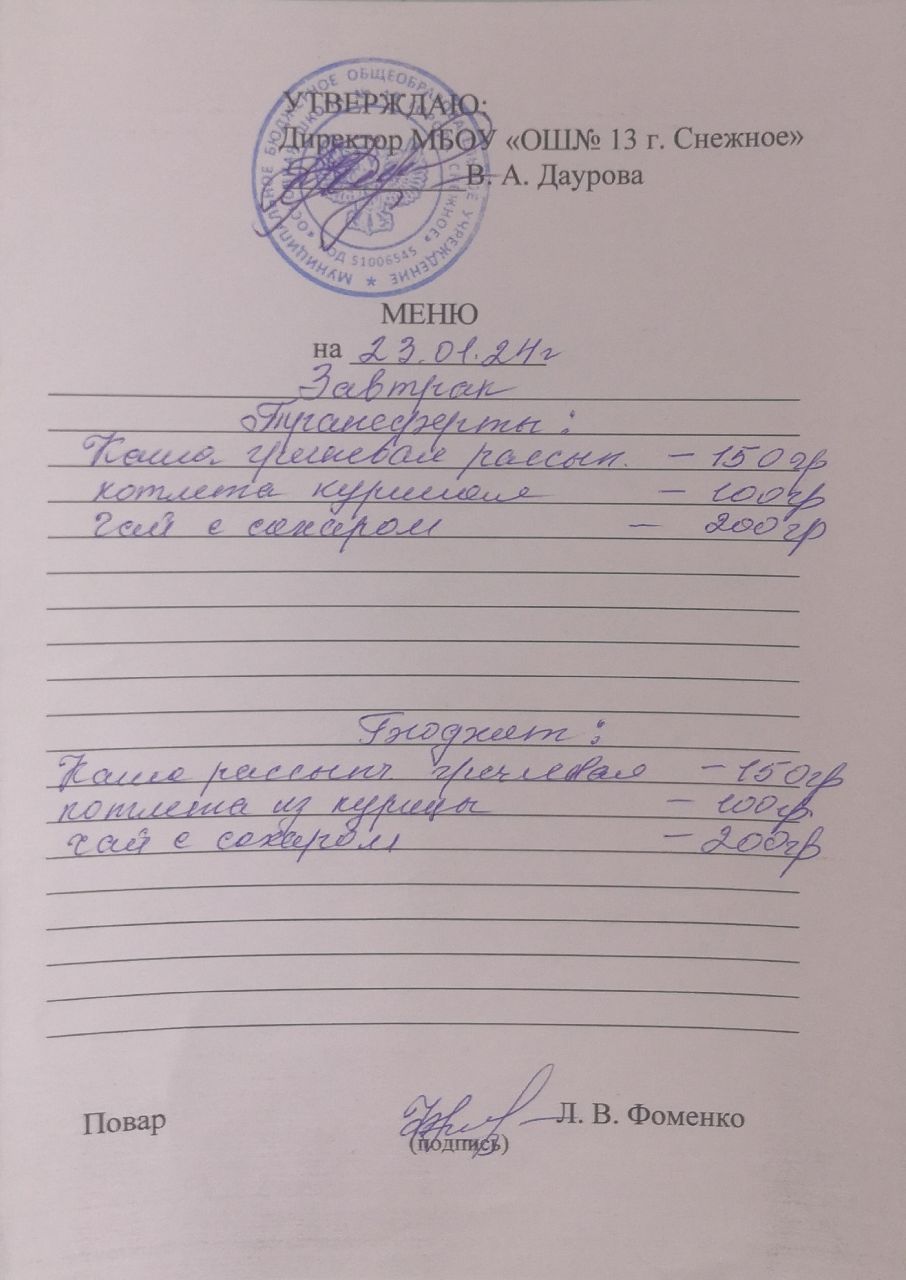 УТВЕРЖДАЮ:
Директор МБОУ «ОШ№ 13 г. Снежное»
В. А. Даурова
МУНИЦИПАЛЬНОЕ БЮДЖЕТНОЕ ОБЩЕОБРАЗОВАТЕЛЬНОЕ УЧРЕЖДЕНИЕ *
КОД 51006545
МЕНЮ
на 23.01.24г
Завтрак
Трансферты:
Каша гречневая рассып. – 150гр
котлета куриная – 100гр
Чай с сахаром – 200гр
Бюджет:
Каша рассыпч гречневая – 150гр
котлета из курицы – 100гр.
чай с сахаром – 200гр
Повар Л. В. Фоменко
(подпись)